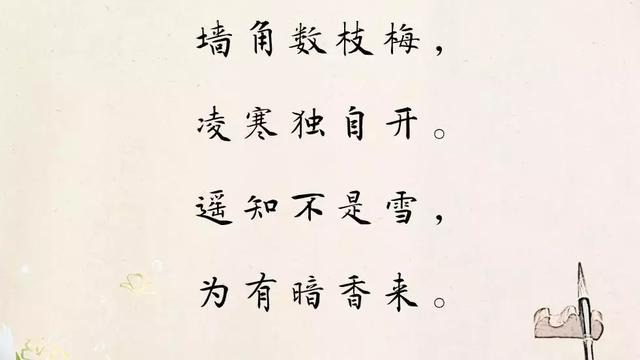 墙角数枝梅，
凌寒独自开。
遥知不是雪，
为有暗香来。